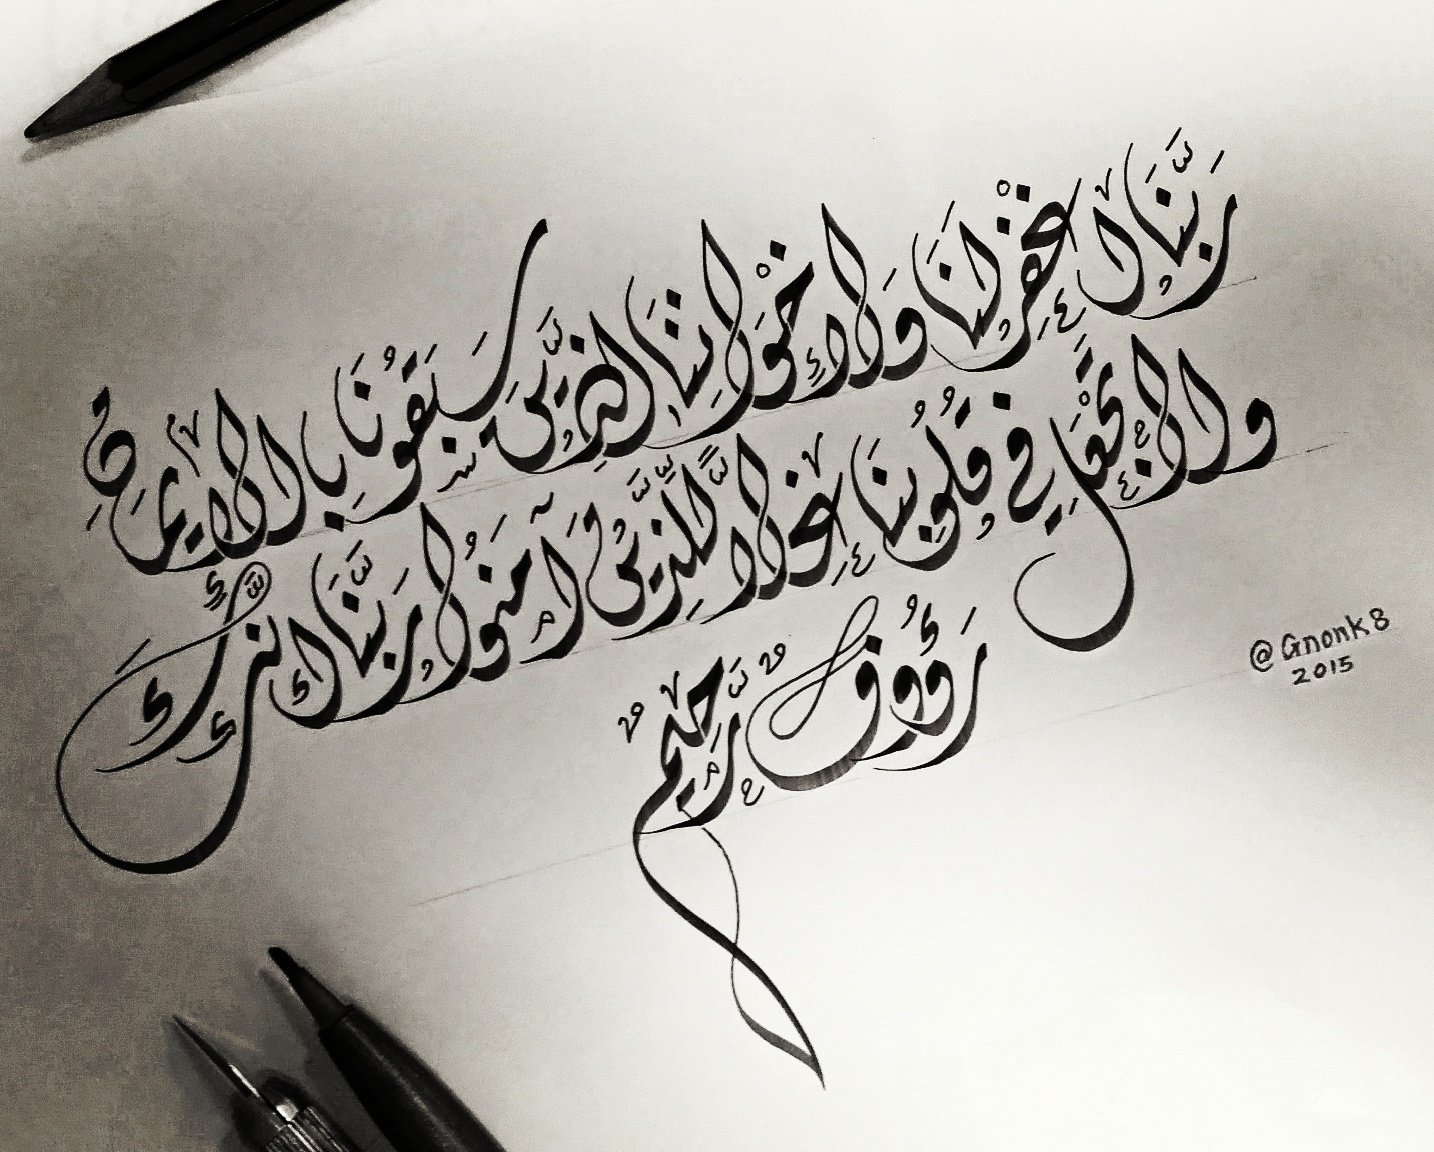 رَبَّنَا اغْفِرْ لَنَا وَلِإِخْوَانِنَا الَّذِينَ سَبَقُونَا بِالْإِيمَانِ
وَلَا تَجْعَلْ فِي قُلُوبِنَا غِلًّا لِّلَّذِينَ آمَنُوا رَبَّنَا إِنَّكَ
رَؤُوفٌ رَّحِيمٌ
@Gnonk8
2015